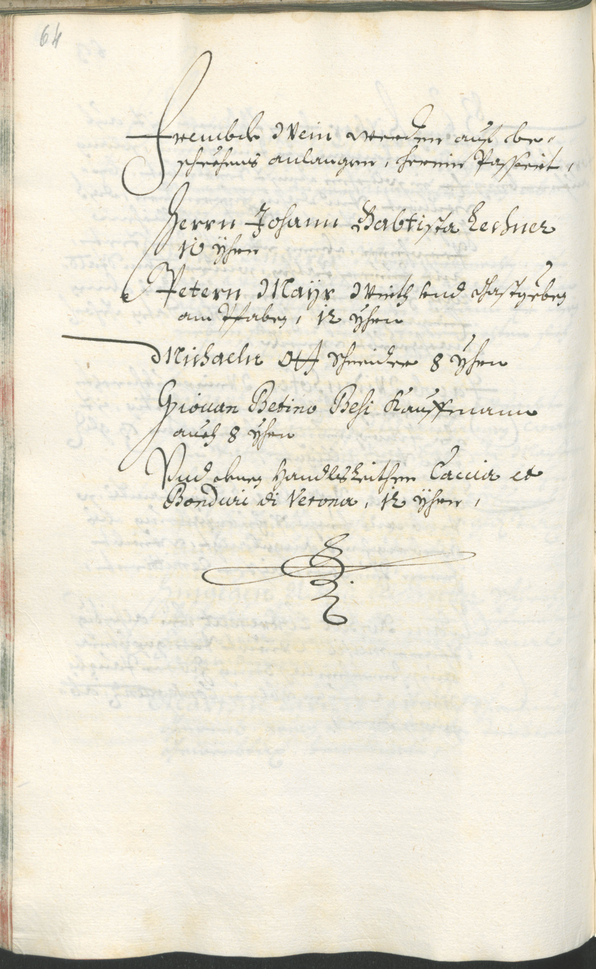 64
Frembde Wein werden auf be-
schehens anlangen, herein Passiert,
Herrn Johann Babtista Lechner
10 Yhrn
Petern Mayr Wirth und Gastgeben
am Pfaben, 12 Yhrn
Michaeln Ott Schneider 8 Yhrn
Giouan Betino Besi Kauffmann
auch 8 Yhrn
Und denen Handlsleüthen Caccia et
Bonduri di Verona, 12 Yhrn,